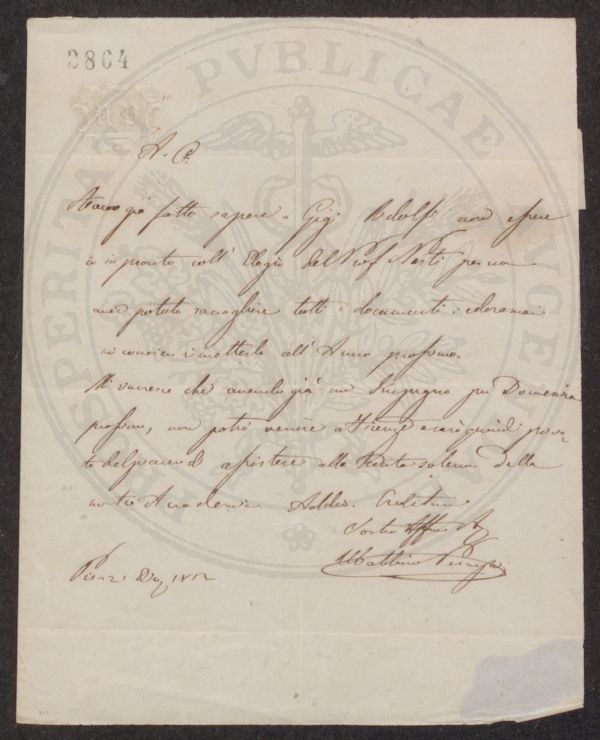 2864
PROSPERITATI PVBLICAE AVGENDAE
A. C.
Avevo già fatto sapere a Gigi Ridolfi non essere
io in pronto coll' Elogio del Prof Nesti per non
aver potuto raccogliere tutti i documenti: ed oramai
mi conviene rimetterlo all' Anno prossimo.
Mi rincresce che avendo già un Impegno per Domenica
prossima, non potrò venire a Firenze e sarò quindi priva-
to del piacere di assistere alla Seduta solenne della
nostra Accademia. Addio. Credetemi
Vostro Affmo A
Pisa 21